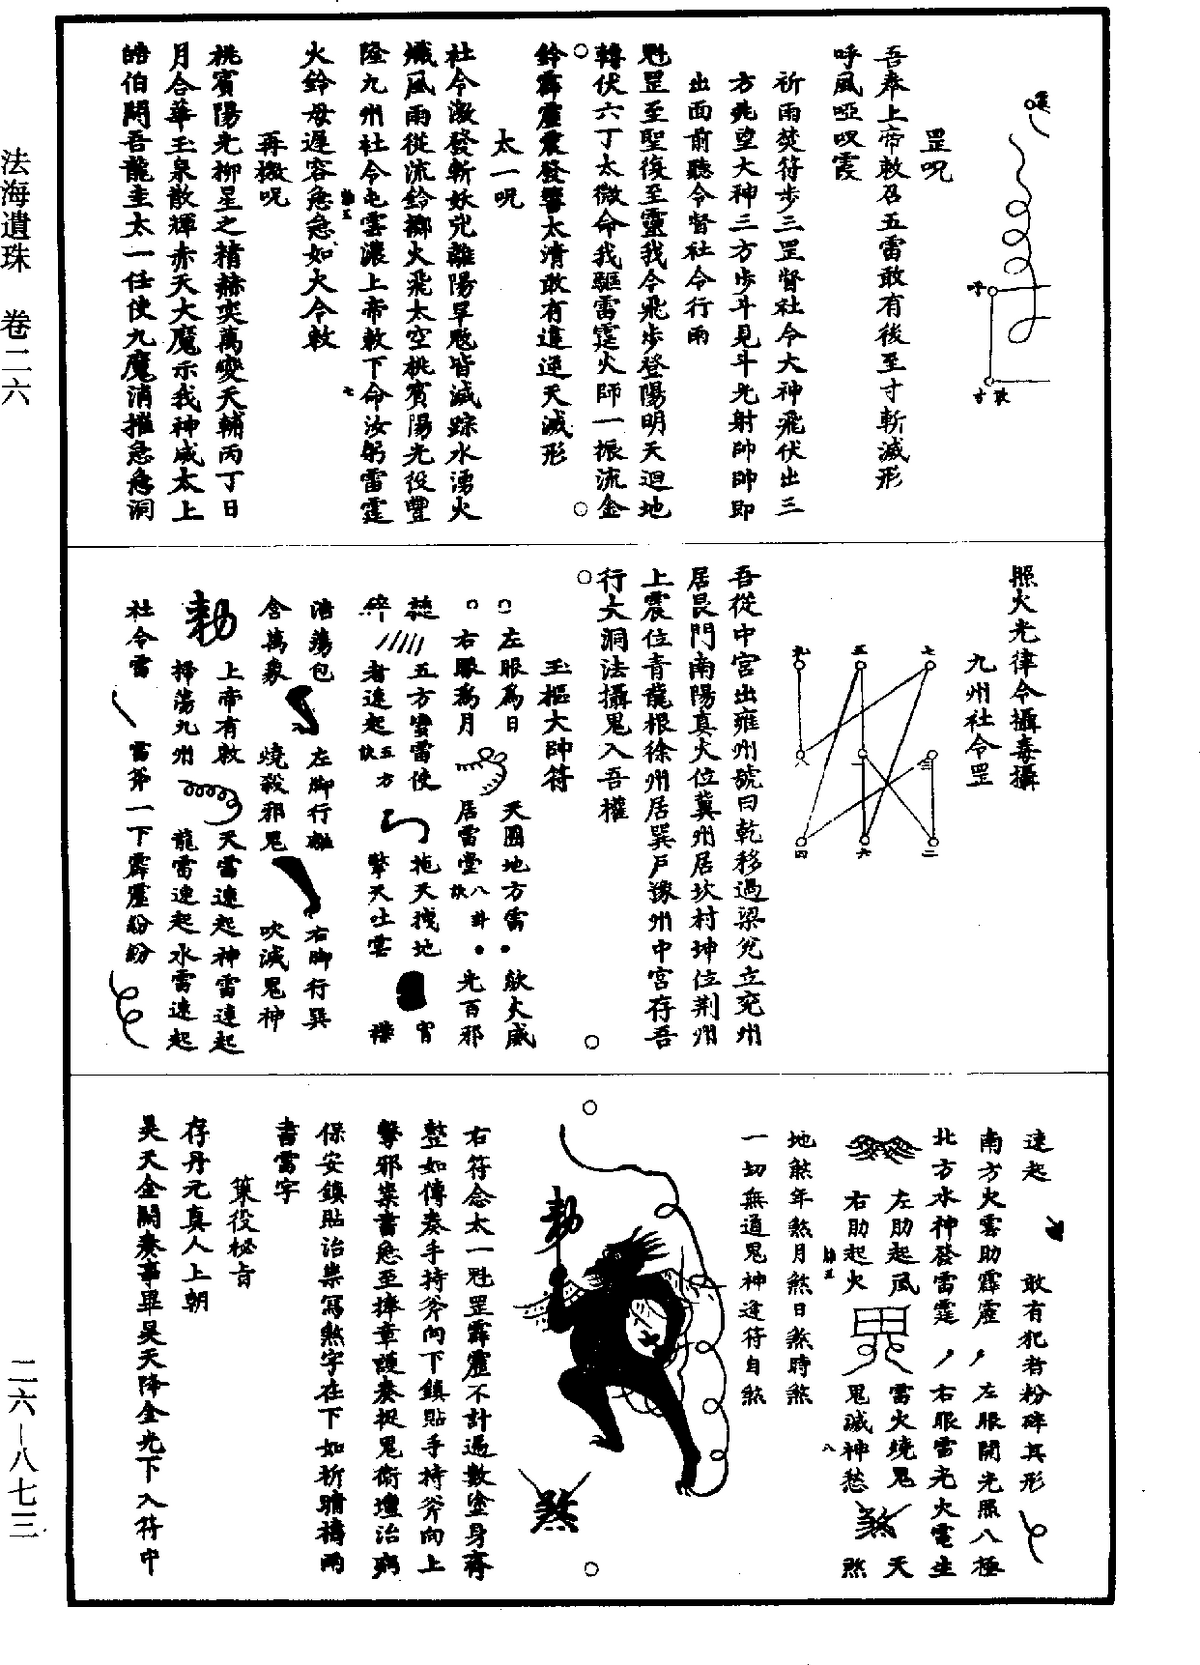 法海遺珠 卷二六
二六–八七三
霞
呼
寸 敢
罡呪
吾奉上帝敕召五雷敢有後至寸斬滅形
呼風啞㕮霞
祈雨焚符步三罡督社令大神飛伏出三
方兆望大神三方步斗見斗光射帥帥即
出面前聽令督社令行雨
魁罡至聖復至靈我今飛步登陽明天迴地
轉伏六丁太微命我驅雷霆火師一振流金
鈴霹靂震發響太清敢有違逆天滅形
太一呪
社令激發斬妖兇離陽旱魃皆滅踪水湧火
熾風雨從流鈴擲火飛太空桃賓陽光役豐
隆九州社令屯雲濃上帝敕下命汝躬雷霆
火鈴毋遲容急急如大令敕
再檄呪
桃賓陽光柳星之精赫奕萬變天輔丙丁日
月合華玉泉散輝赤天大魔示我神威太上
皓伯開吾龍圭太一任使九魔消摧急急洞
照火光律令攝毒攝
九州社令罡
九 五 七
八 一 三
四 六 二
吾從中宮出雍州號曰乾移過梁兌立兗州
居艮門南陽真火位冀州居坎村坤位荆州
上震位青龍根徐州居巽戶豫州中宮存吾
行大洞法攝鬼入吾權
玉樞大帥符
左眼為日 天圓地方雷 歘火威
右眼為月 居雷堂 八卦訣 光百邪
五方蠻雷使 拖天拽地
者速起 五方訣 擎天吐雲
浩蕩包 左脚行離 右脚行巽
含萬象 燒殺邪鬼 吹滅鬼神
勅
上帝有敕 天雷速起神雷速起
掃蕩九州 龍雷速起水雷速起
社令雷 雷斧一下霹靂紛紛
速起 敢有犯者粉碎其形
南方火雲助霹靂 左眼開光照八極
北方水神發雷霆 右眼雷光火電生
左肋起風 雷火燒鬼 天
右肋起火 鬼滅神愁 煞
地煞年煞月煞日煞時煞
一切無道鬼神逢符自煞
勅
煞
右符念太一魁罡霹靂不計過數塗身齊
整如傳奏手持斧向下鎮貼手持斧向上
擊邪祟書急至捧章護奏捉鬼衛壇治病
保安鎮貼治祟寫煞字在下如祈晴禱雨
書雷字
策役秘旨
存丹元真人上朝
昊天金闕奏事畢昊天降金光下入符中